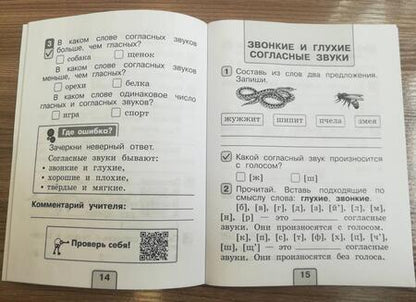 3 В каком слове согласных звуков
больше, чем гласных?
собака щенок
В каком слове согласных звуков
меньше, чем гласных?
орехи белка
В каком слове одинаковое число
гласных и согласных звуков?
игра спорт
Где ошибка?
Зачеркни неверный ответ.
Согласные звуки бывают:
• звонкие и глухие,
• хорошие и плохие,
• твёрдые и мягкие.
Комментарий учителя:
Проверь себя!
14
ЗВОНКИЕ И ГЛУХИЕ
СОГЛАСНЫЕ ЗВУКИ
1 Составь из слов два предложения.
Запиши.
жужжит шипит пчела змея
Какой согласный звук произносится
с голосом?
[ж] [ш]
2 Прочитай. Вставь подходящие по
смыслу слова: глухие, звонкие.
[б], [в], [г], [д], [з], [й’], [л], [м],
[н], [р] — это согласные
звуки. Они произносятся с голосом.
[к], [п], [с], [т], [ф], [х], [ц], [ч’],
[ш], [щ’] — это согласные
звуки. Они произносятся без голоса.
15